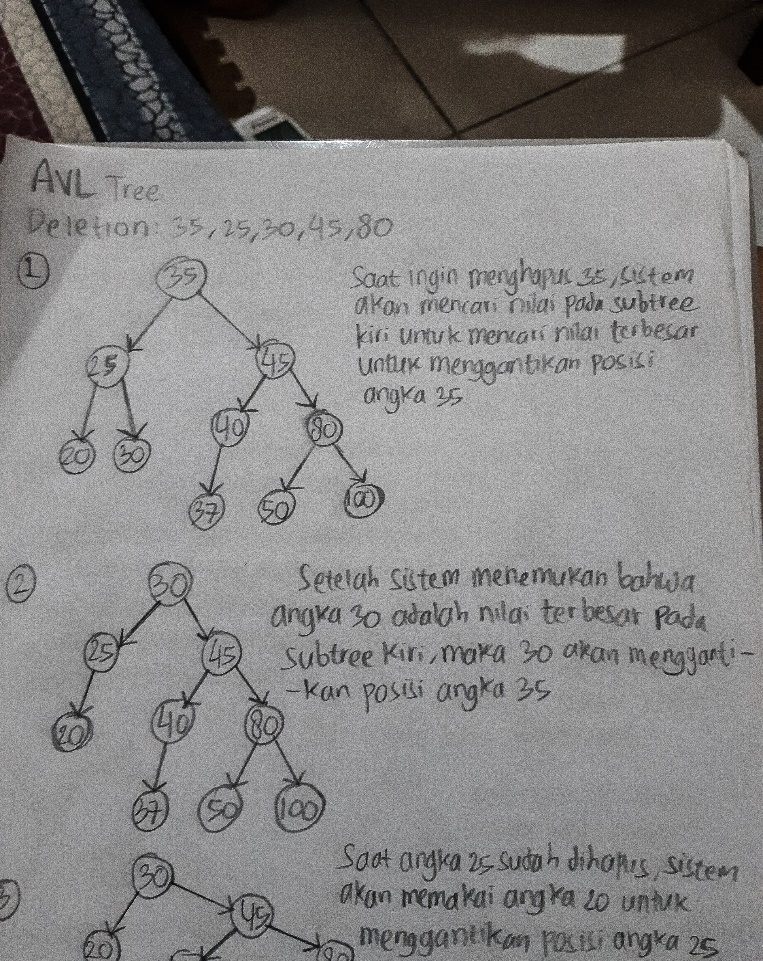 AVL Tree
Deletion: 35, 25, 30, 45, 80
1
35
25 45
20 30 40 80
37 50 100
Saat ingin menghapus 35, sistem
akan mencari nilai pada subtree
kiri untuk mencari nilai terbesar
untuk menggantikan posisi
angka 35
2
30
25 45
20 40 80
37 50 100
Setelah sistem menemukan bahwa
angka 30 adalah nilai terbesar pada
subtree kiri, maka 30 akan mengganti-
-kan posisi angka 35
3
30
45
20
80
Saat angka 25 sudah dihapus, sistem
akan memakai angka 20 untuk
menggantikan posisi angka 25